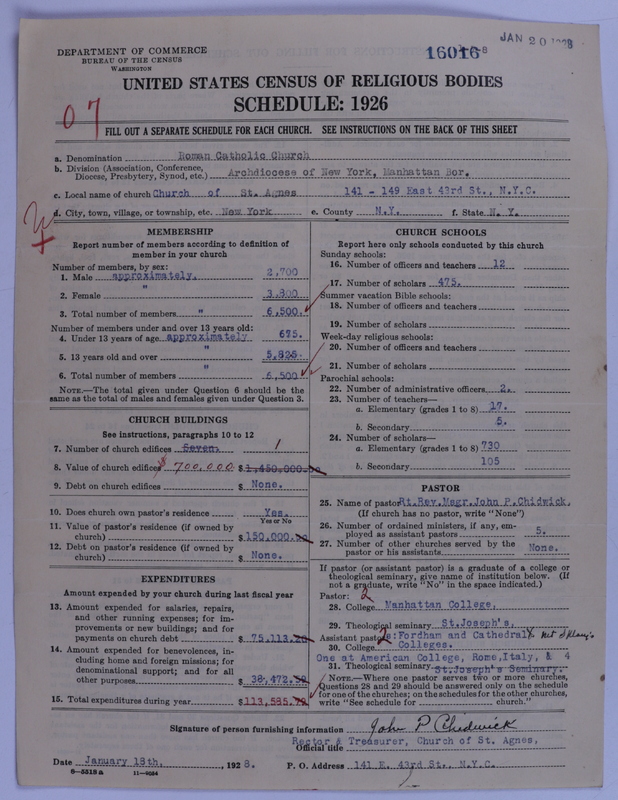 DEPARTMENT OF COMMERCE
BUREAU OF THE CENSUS
WASHINGTON
16016
JAN 20 1928
UNITED STATES CENSUS OF RELIGIOUS BODIES
SCHEDULE: 1926
07
FILL OUT A SEPARATE SCHEDULE FOR EACH CHURCH. SEE INSTRUCTIONS ON THE BACK OF THIS SHEET
a. Denomination Roman Catholic Church
b. Division (Association, Conference, Diocese, Presbytery, Synod, etc.) Archdiocese of New York, Manhattan Bor.
c. Local name of church Church of St. Agnes 141 - 149 East 43rd St., N.Y.C.
d. City, town, village, or township, etc. New York e. County N.Y. f. State N. Y.
MEMBERSHIP
Report number of members according to definition of
member in your church
Number of members, by sex:
1. Male approximately. 2,700
2. Female " 3,800
3. Total number of members " 6,500
Number of members under and over 13 years old:
4. Under 13 years of age approximately 675.
5. 13 years old and over " 5,825
6. Total number of members " 6,500
NOTE.—The total given under Question 6 should be the
same as the total of males and females given under Question 3.
CHURCH BUILDINGS
See instructions, paragraphs 10 to 12
7. Number of church edifices Seven. 1
8. Value of church edifices $700,000 $1,450,000.00
9. Debt on church edifices $ None.
10. Does church own pastor's residence Yes.
Yes or No
11. Value of pastor's residence (if owned by
church) $150,000.00
12. Debt on pastor's residence (if owned by
church) $ None.
EXPENDITURES
Amount expended by your church during last fiscal year
13. Amount expended for salaries, repairs,
and other running expenses; for im-
provements or new buildings; and for
payments on church debt $ 75,113.20
14. Amount expended for benevolences, in-
cluding home and foreign missions; for
denominational support; and for all
other purposes $ 38,472.59
15. Total expenditures during year $113,585.79
CHURCH SCHOOLS
Report here only schools conducted by this church
Sunday schools:
16. Number of officers and teachers 12
17. Number of scholars 475.
Summer vacation Bible schools:
18. Number of officers and teachers
19. Number of scholars
Week-day religious schools:
20. Number of officers and teachers
21. Number of scholars
Parochial schools:
22. Number of administrative officers 2.
23. Number of teachers—
a. Elementary (grades 1 to 8) 17.
b. Secondary 5.
24. Number of scholars—
a. Elementary (grades 1 to 8) 730
b. Secondary 105
PASTOR
25. Name of pastor Rt.Rev.Msgr.John P.Chidwick.
(If church has no pastor, write "None")
26. Number of ordained ministers, if any, em-
ployed as assistant pastors 5.
27. Number of other churches served by the
pastor or his assistants None.
If pastor (or assistant pastor) is a graduate of a college or
theological seminary, give name of institution below. (If
not a graduate, write "No" in the space indicated.)
Pastor: 2
28. College Manhattan College,
29. Theological seminary St.Joseph's,
Assistant pastor 2 s: Fordham and Cathedral
30. College Colleges.
One at American College, Rome,Italy, & 4
31. Theological seminary St.Joseph's Seminary.
NOTE.—Where one pastor serves two or more churches,
Question 28 and 29 should be answered only on the schedule
for one of the churches; on the schedules for the other churches,
write "See schedule for church."
Signature of person furnishing information John P Chidwick
Rector & Treasurer, Church of St. Agnes,
Official title
Date January 18th, 1928. P. O. Address 141 E. 43rd St., N.Y.C.
6—5518a 11—9084